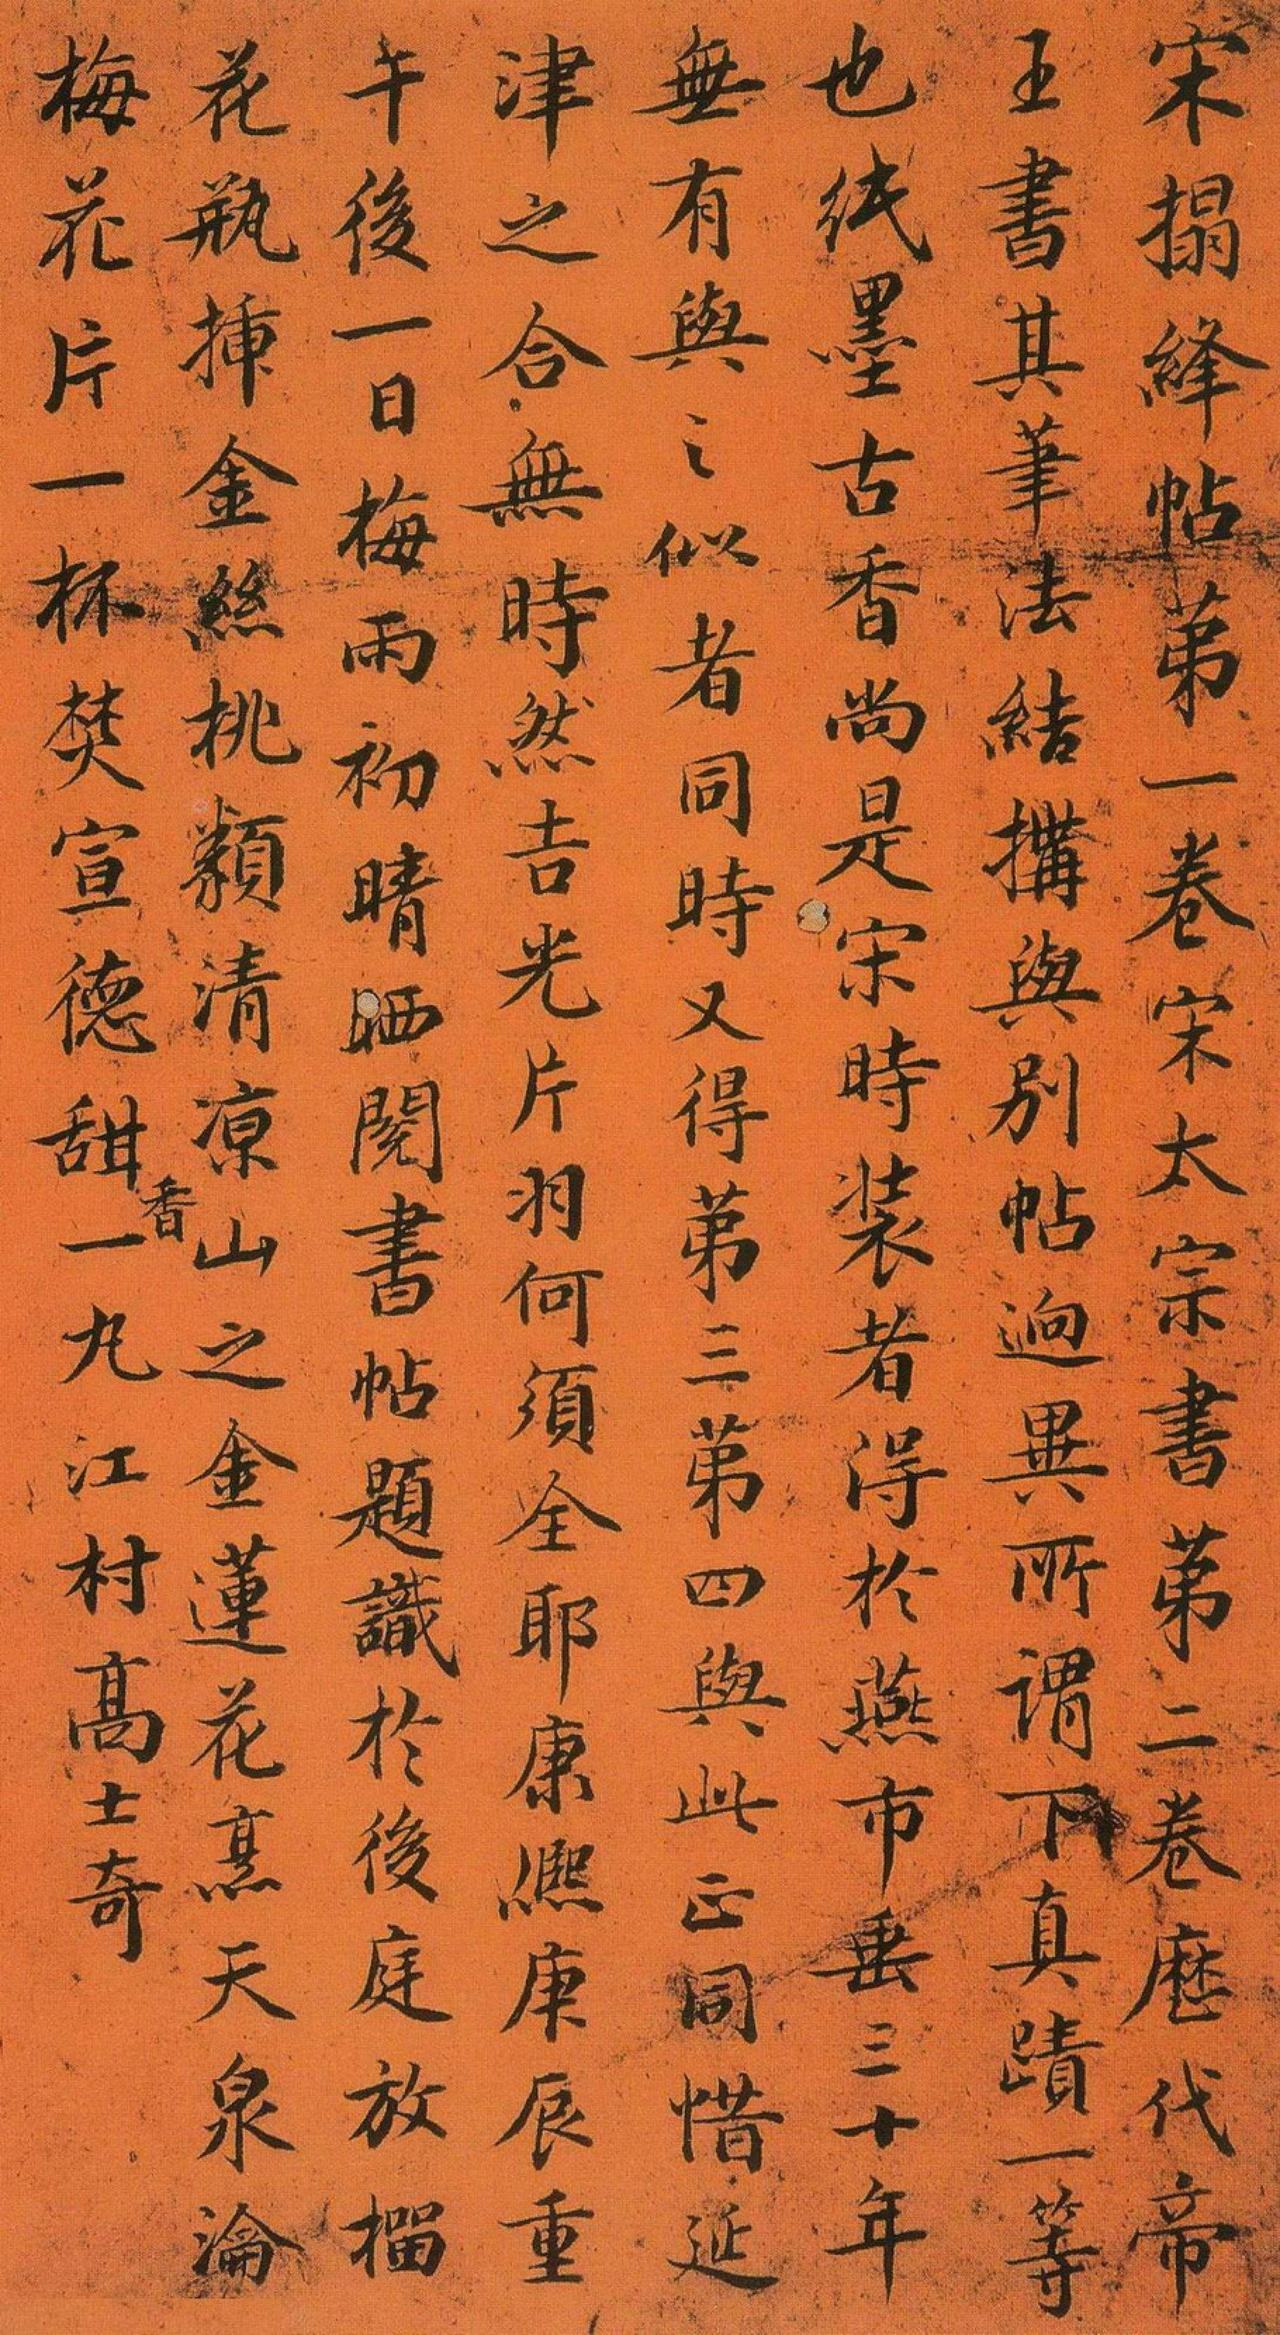 宋搨絳帖第一卷宋太宗書第二卷歷代帝
王書其筆法結搆與別帖迥異所謂下真蹟一等
也紙墨古香尚是宋時裝者得於燕市垂三十年
無有與之似者同時又得第三第四與此正同惜延
津之合無時然吉光片羽何須全耶康熙庚辰重
午後一日梅雨初晴晒閱書帖題識於後庭放榴
花瓶揷金絲桃纇清凉山之金蓮花烹天泉瀹
梅花片一杯焚宣德甜香一丸江村高士奇